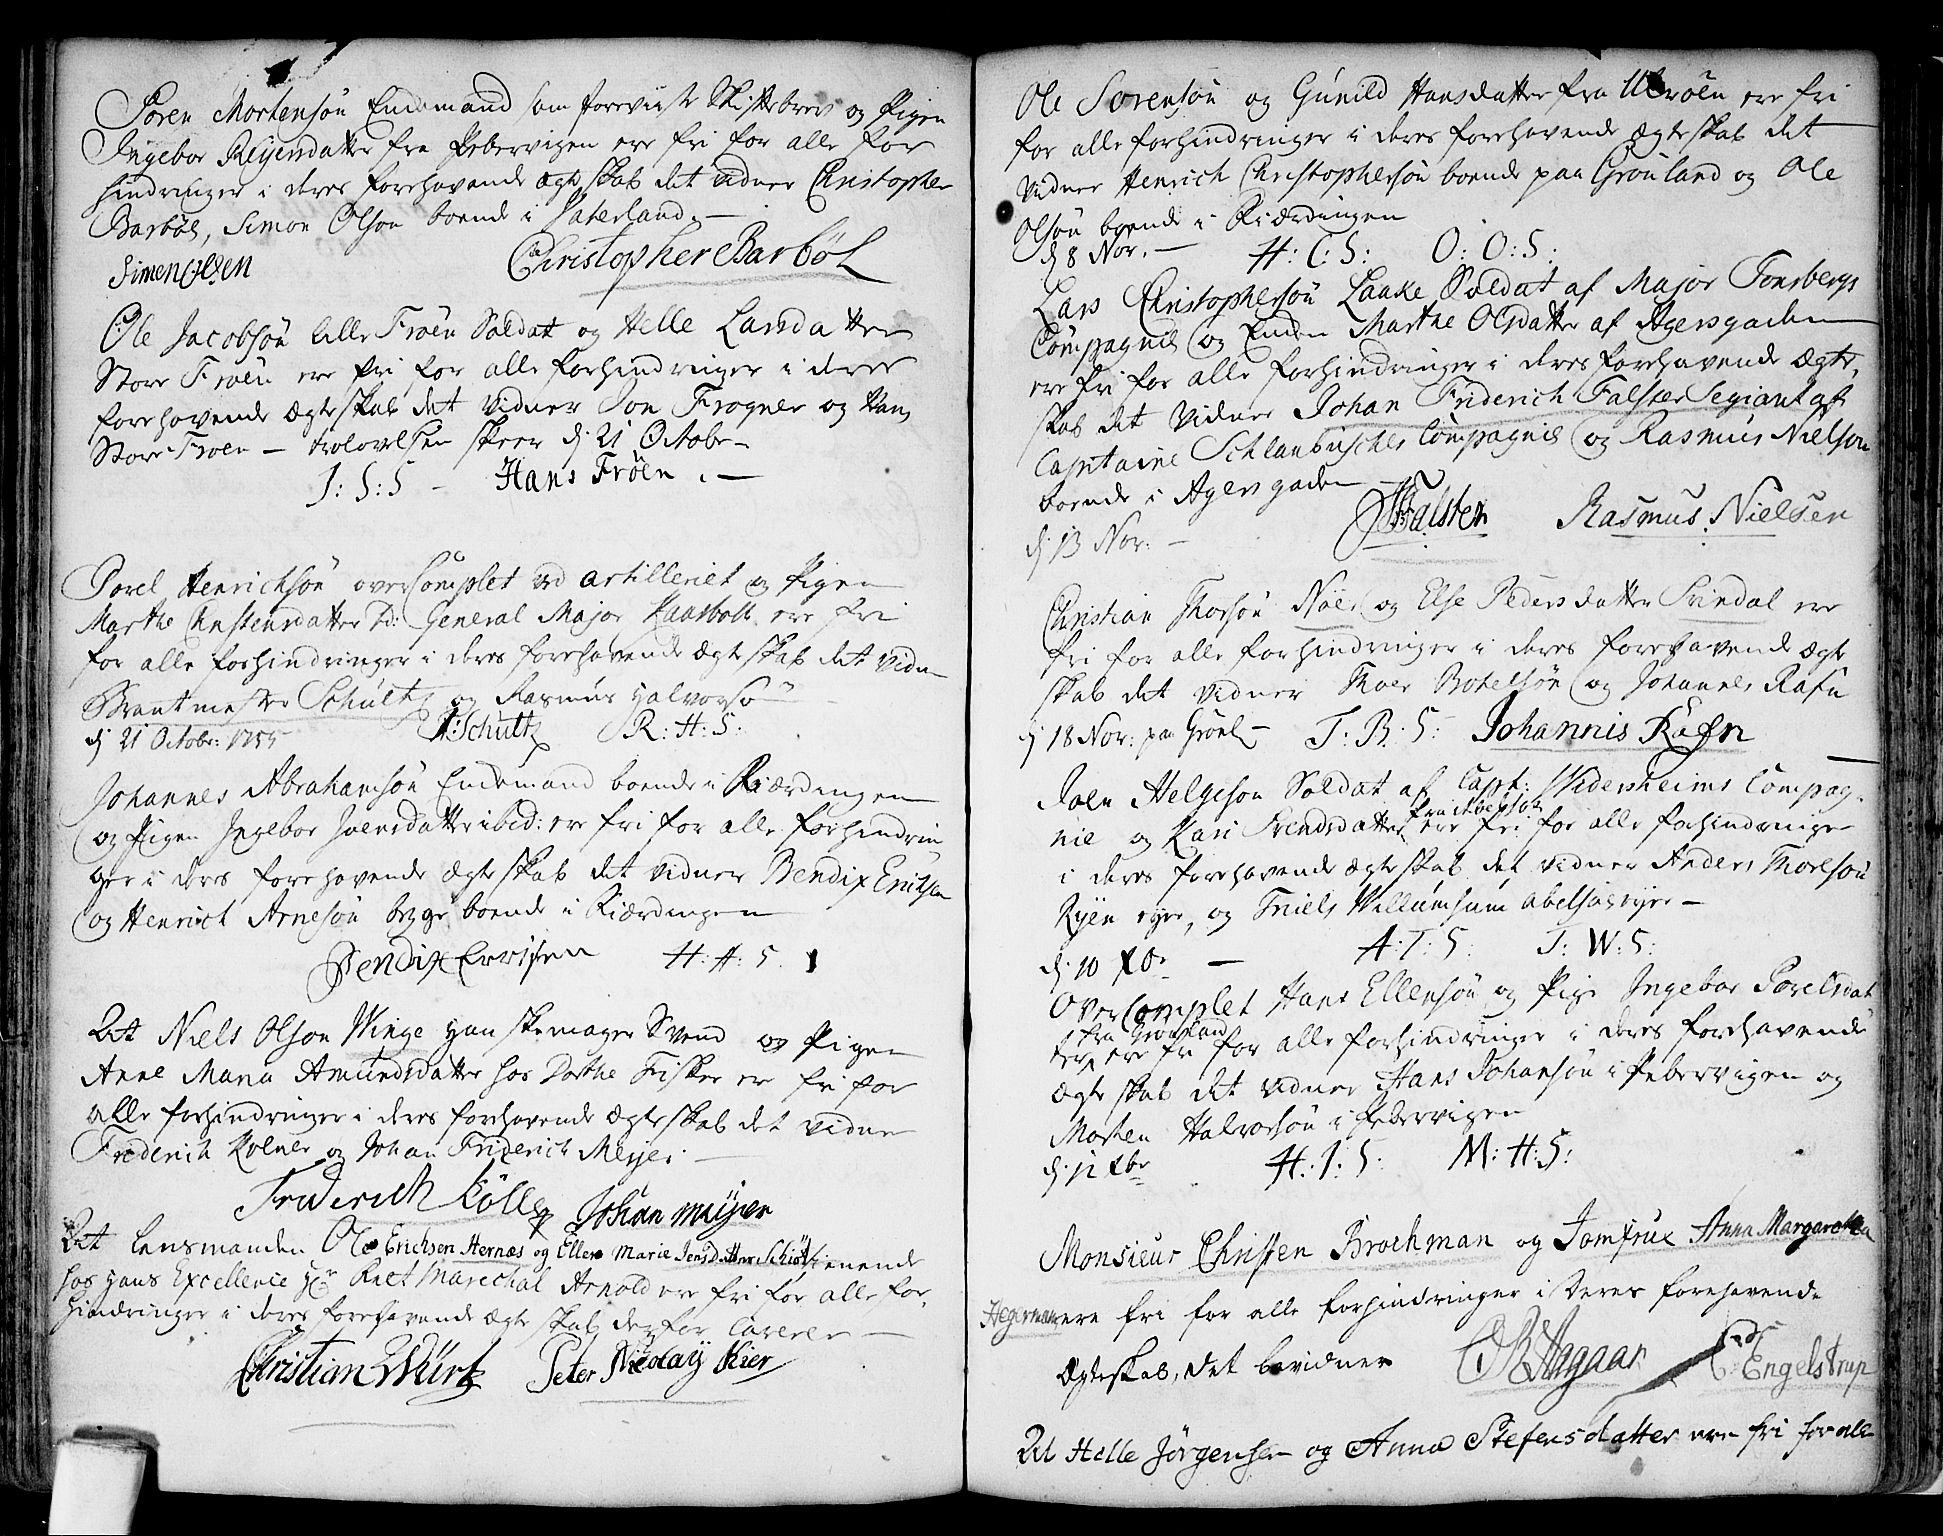 Søren Mortensøn Enckemand som foreviiste Skiftebrev og Pigen
Ingebor Reyersdatter fra Pebervigen ere fri for alle for
hindringer i deres forehavende ægteskab det vidner Christopher
Barbøl, Simon Olson boende i Vaterland. —
Simen Olsen Christopher Barbøl
Ole Jacobsøn lille Froen Soldat og Helle Larsdatter
Store Froen ere fri for alle forhindringer i deres
forehavende ægteskab det vidner Son Frogner og Hans
Store Froen — trolovelsen skeer d: 21 Octobr —
J: S: S — Hans Frøen . —
Povel Henrichsøn overComplet ved artilleriet og Pigen
Marthe Christensdatter t: General Major Kaasbøll ere fri
for alle forhindringer i deres forehavende ægteskab det vidn
Brantmester Schültz og Rasmus Halvorsøn
d: 21 Octobr: 1755 Schultz R: H: S:
Johannes Abrahamsøn Enckemand boende i Riærdingen
og Pigen Ingebor Joensdatter ibid: ere fri for alle forhindrin
ger i deres forehavende ægteskab det vidner Bendix Erichsen
og Henrich Arnesøn begge boende i Riærdingen
Bendix Erricsen H: A: S.
At Niels Olson Winge Handskemager Svend og Pigen
Anne Maria Amundsdatter hos Dorthe Fisker er fri for
alle forhindringer i deres forehavende ægteskab det vidner
Friderich Kolner og Johan Friderich Meyer —
Friderich Köller Johan Meyer
At Lensmanden Ole Erichsen Hernæs og Ellen Marie Jensdatter Schiøtt tienende
hos Hans Excellence Hr Riet Marechal Arnold ere fri for alle for
hindringer i deres forehavende ægteskab, derfor Caverer —
Christian Würtz Peter Nicolay Kier
Ole Sørensøn og Gunild Hansdatter fra Ulvøen ere fri
for alle forhindringer i deres forehavende ægteskab det
vidner Henrich Christophersøn boende paa Grønland og Ole
Olsøn boende i Riærdingen
d 8 Nov. — H: C: S: O: O: S:
Lars Christophersøn Laake Soldat af Major Tonsbergs
Compagnie og Enken Marthe Olsdatter af Agersgaden
ere fri for alle forhindringer i deres forehavende ægte
skab det vidner Johan Friderich Falster Segiant af
Capitaine Schlanbusches Compagnie og Rasmus Nielsøn
boende i Agersgaden —
d: 13 Nov: — JFFalster Rasmus Nielsen
Christian Thorsøn Nøer og Else Pedersdatter Svindal ere
fri for alle forhindringer i deres forehavende ægte
skab det vidner Thoer Botelsøn og Johannes Rafn
d 18 Nov: paa Grønl — T. B. S: Johannis Rafn
Joen Helgesøn Soldat af Capt: Widersheims Compag
nie og Kari Svendsdatter fra Abelsøe ere fri for alle forhindringer
i deres forehavende ægteskab det vidner Anders Thorsøn
Ryen eyer, og Truels Willumsøn abelsøe eyer —
d: 10 Xbr — A: T: S T: W: S:
OverComplet Hans Ellensøn og Pige Ingebor Povelsdat
ter fra Grønland ere fri for alle forhindringer i deres forehavende
ægteskab det vidner Hans Johansøn i Pebervigen og
Morten Halvorsøn i Pebervigen
d: 12 Xbr H: J: S: M: H: S:
Monsieur Christen Brochman og Jomfrue Anna Margaretha
Hegermann ere fri for alle forhindringer i Deres forehavende
Ægteskab, det bevidner Aagaar Engelstrup
At Helle Jörgensen og Anna Stefensdatter ere fri for alle